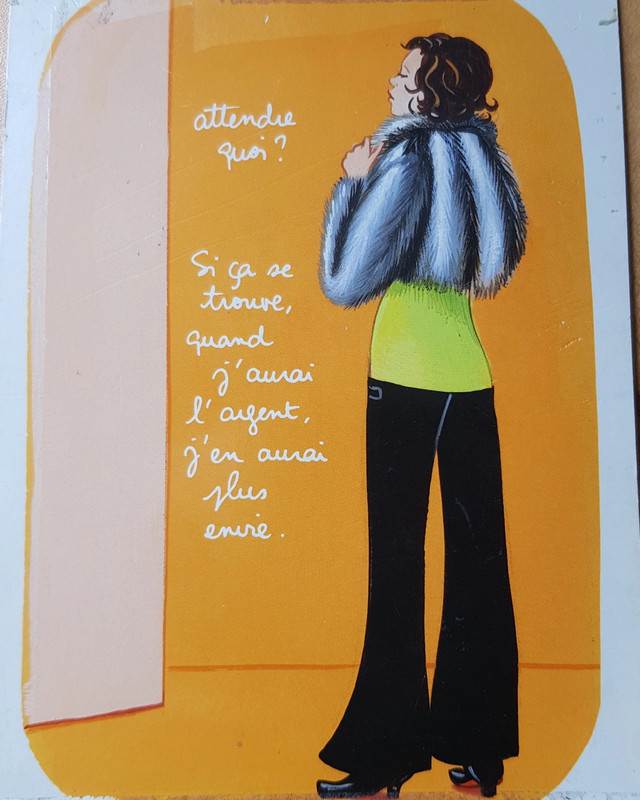 attendre
quoi ?
Si ça se
trouve,
quand
j'aurai
l'argent,
j'en aurai
plus
envie.